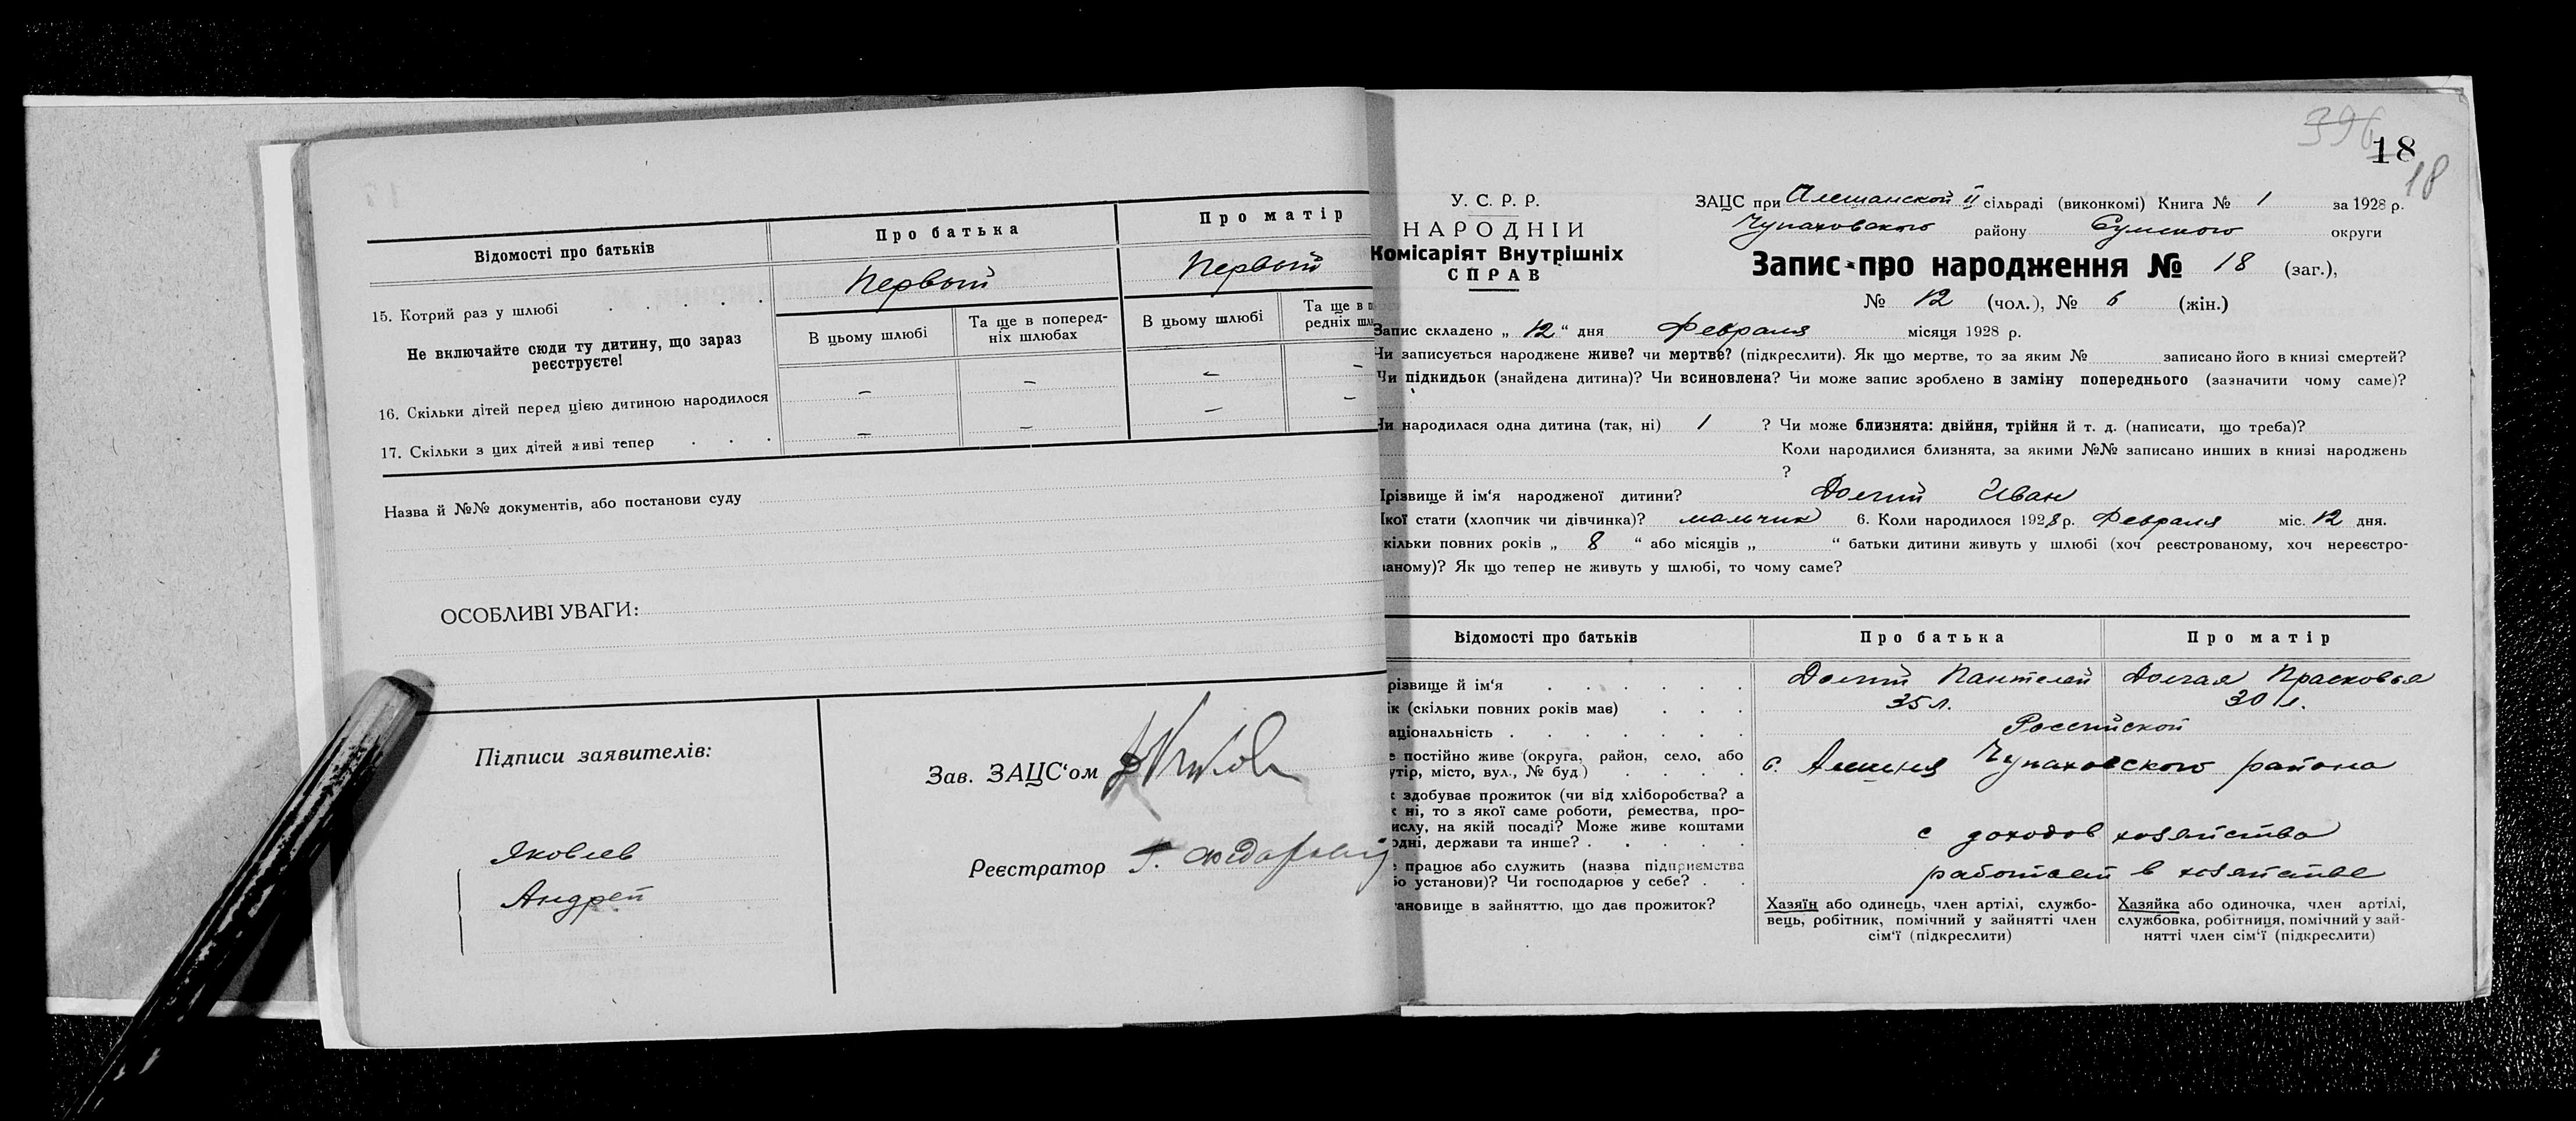 Відомості про батьків
Про батька
Про матір
15. Котрий раз у шлюбі
Первый
Первый
Не включайте сюди ту дитину, що зараз
реєструєте!
В цьому шлюбі
Та ще в поперед-
ніх шлюбах
В цьому шлюбі
Та ще в
редніх
16. Скільки дітей перед цією дитиною народилося
— — — —
17. Скільки з цих дітей живі тепер
— — — —
Назва й №№ документів, або постанови суду
ОСОБЛИВІ УВАГИ:
Підписи заявителів:
Яковлев
Андрей
Зав. ЗАЦС‘ом
Реєстратор
396
18
18
У. С. Р. Р.
НАРОДНІЙ
Комісаріят Внутрішніх
СПРАВ
ЗАЦС при Алешанской II сільраді (виконкомі) Книга № 1 за 1928 р.
Чупаховского району Сумского округи
Запис про народження № 18 (заг.),
№ 12 (чол.), № 6 (жін.)
Запис складено „ 12 “ дня Февраля місяця 1928 р.
Чи записується народжене живе? чи мертве? (підкреслити). Як що мертве, то за яким № записано його в книзі смертей?
Чи підкидьок (знайдена дитина)? Чи всиновлена? Чи може запис зроблено в заміну попереднього (зазначити чому саме)?
Чи народилася одна дитина (так, ні) 1 ? Чи може близнята: двійня, трійня й т. д. (написати, що треба)?
Коли народилися близнята, за якими №№ записано инших в книзі народжень
?
Прізвище й ім‘я народженої дитини? Долгий Иван
Якої стати (хлопчик чи дівчинка)? мальчик 6. Коли народилося 1928 р. Февраля міс. 12 дня.
кільки повних років „ 8 “ або місяців „ “ батьки дитини живуть у шлюбі (хоч реєстрованому, хоч нереєстро-
ваному)? Як що тепер не живуть у шлюбі, то чому саме?
Відомості про батьків
Про батька
Про матір
різвище й ім‘я
Долгий Пантелей
Долгая Прасковья
ік (скільки повних років має)
35 л.
30 л.
аціональність
Российской
е постійно живе (округа, район, село, або
утір, місто, вул., № буд)
с. Алешня Чупаховского района
к здобуває прожиток (чи від хліборобства? а
к ні, то з якої саме роботи, ремества, про-
ислу, на якій посаді? Може живе коштами
одні, держави та инше?
с доходов хозяйства
е працює або служить (назва підприємства
бо установи)? Чи господарює у себе?
работает в хозяйстве
тановище в зайняттю, що дає прожиток?
Хазяїн або одинець, член артілі, службо-
вець, робітник, помічний у зайнятті член
сім‘ї (підкреслити)
Хазяйка або одиночка, член артілі,
службовка, робітниця, помічний у зай-
нятті член сім‘ї (підкреслити)